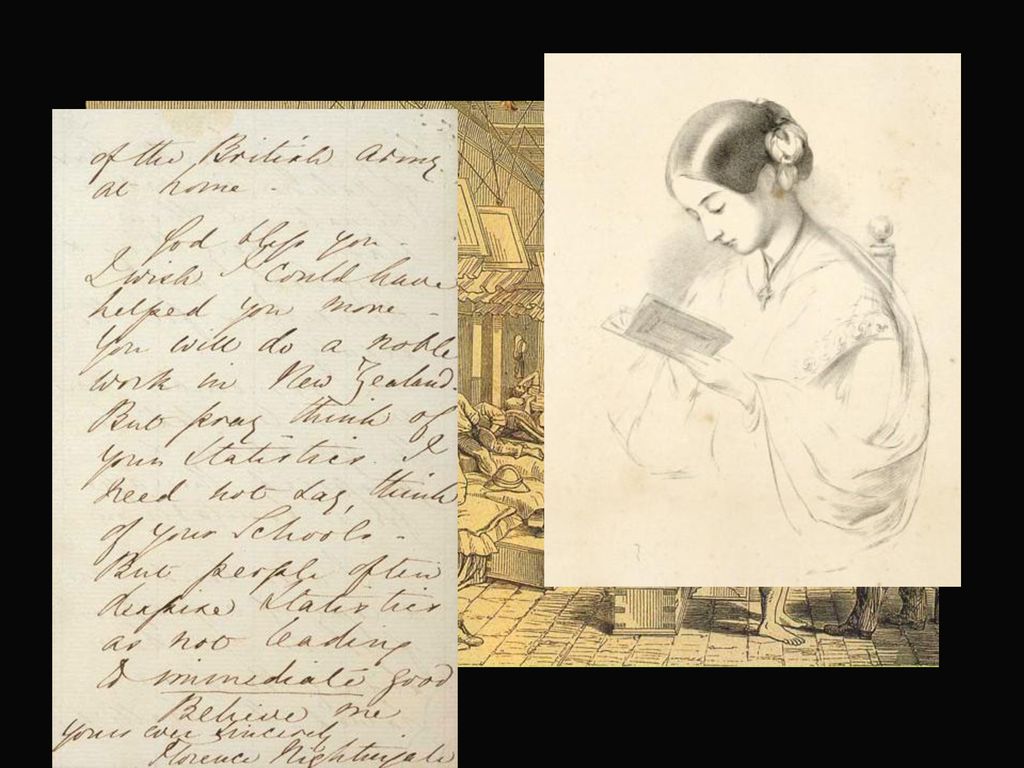 of the British Army
at home.
God bless you.
I wish I could have
helped you more.
You will do a noble
work in New Zealand.
But pray think of
your Statistics. I
need not say, think
of your Schools.
But people often
despise Statistics
as not leading
to immediate good
Believe me
yours ever sincerely
Florence Nightingale